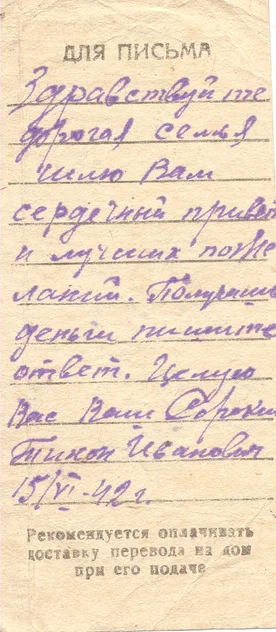 ДЛЯ ПИСЬМА
Здравствуйте
дорогая семья
шлю Вам
сердечный привет
и лучших поже
ланий. Получишь
деньги пишите
ответ. Целую
Вас Ваш Сорокин
Тихон Иванович
15/VI-42 г.
Рекомендуется оплачивать
доставку перевода на дом
при его подаче